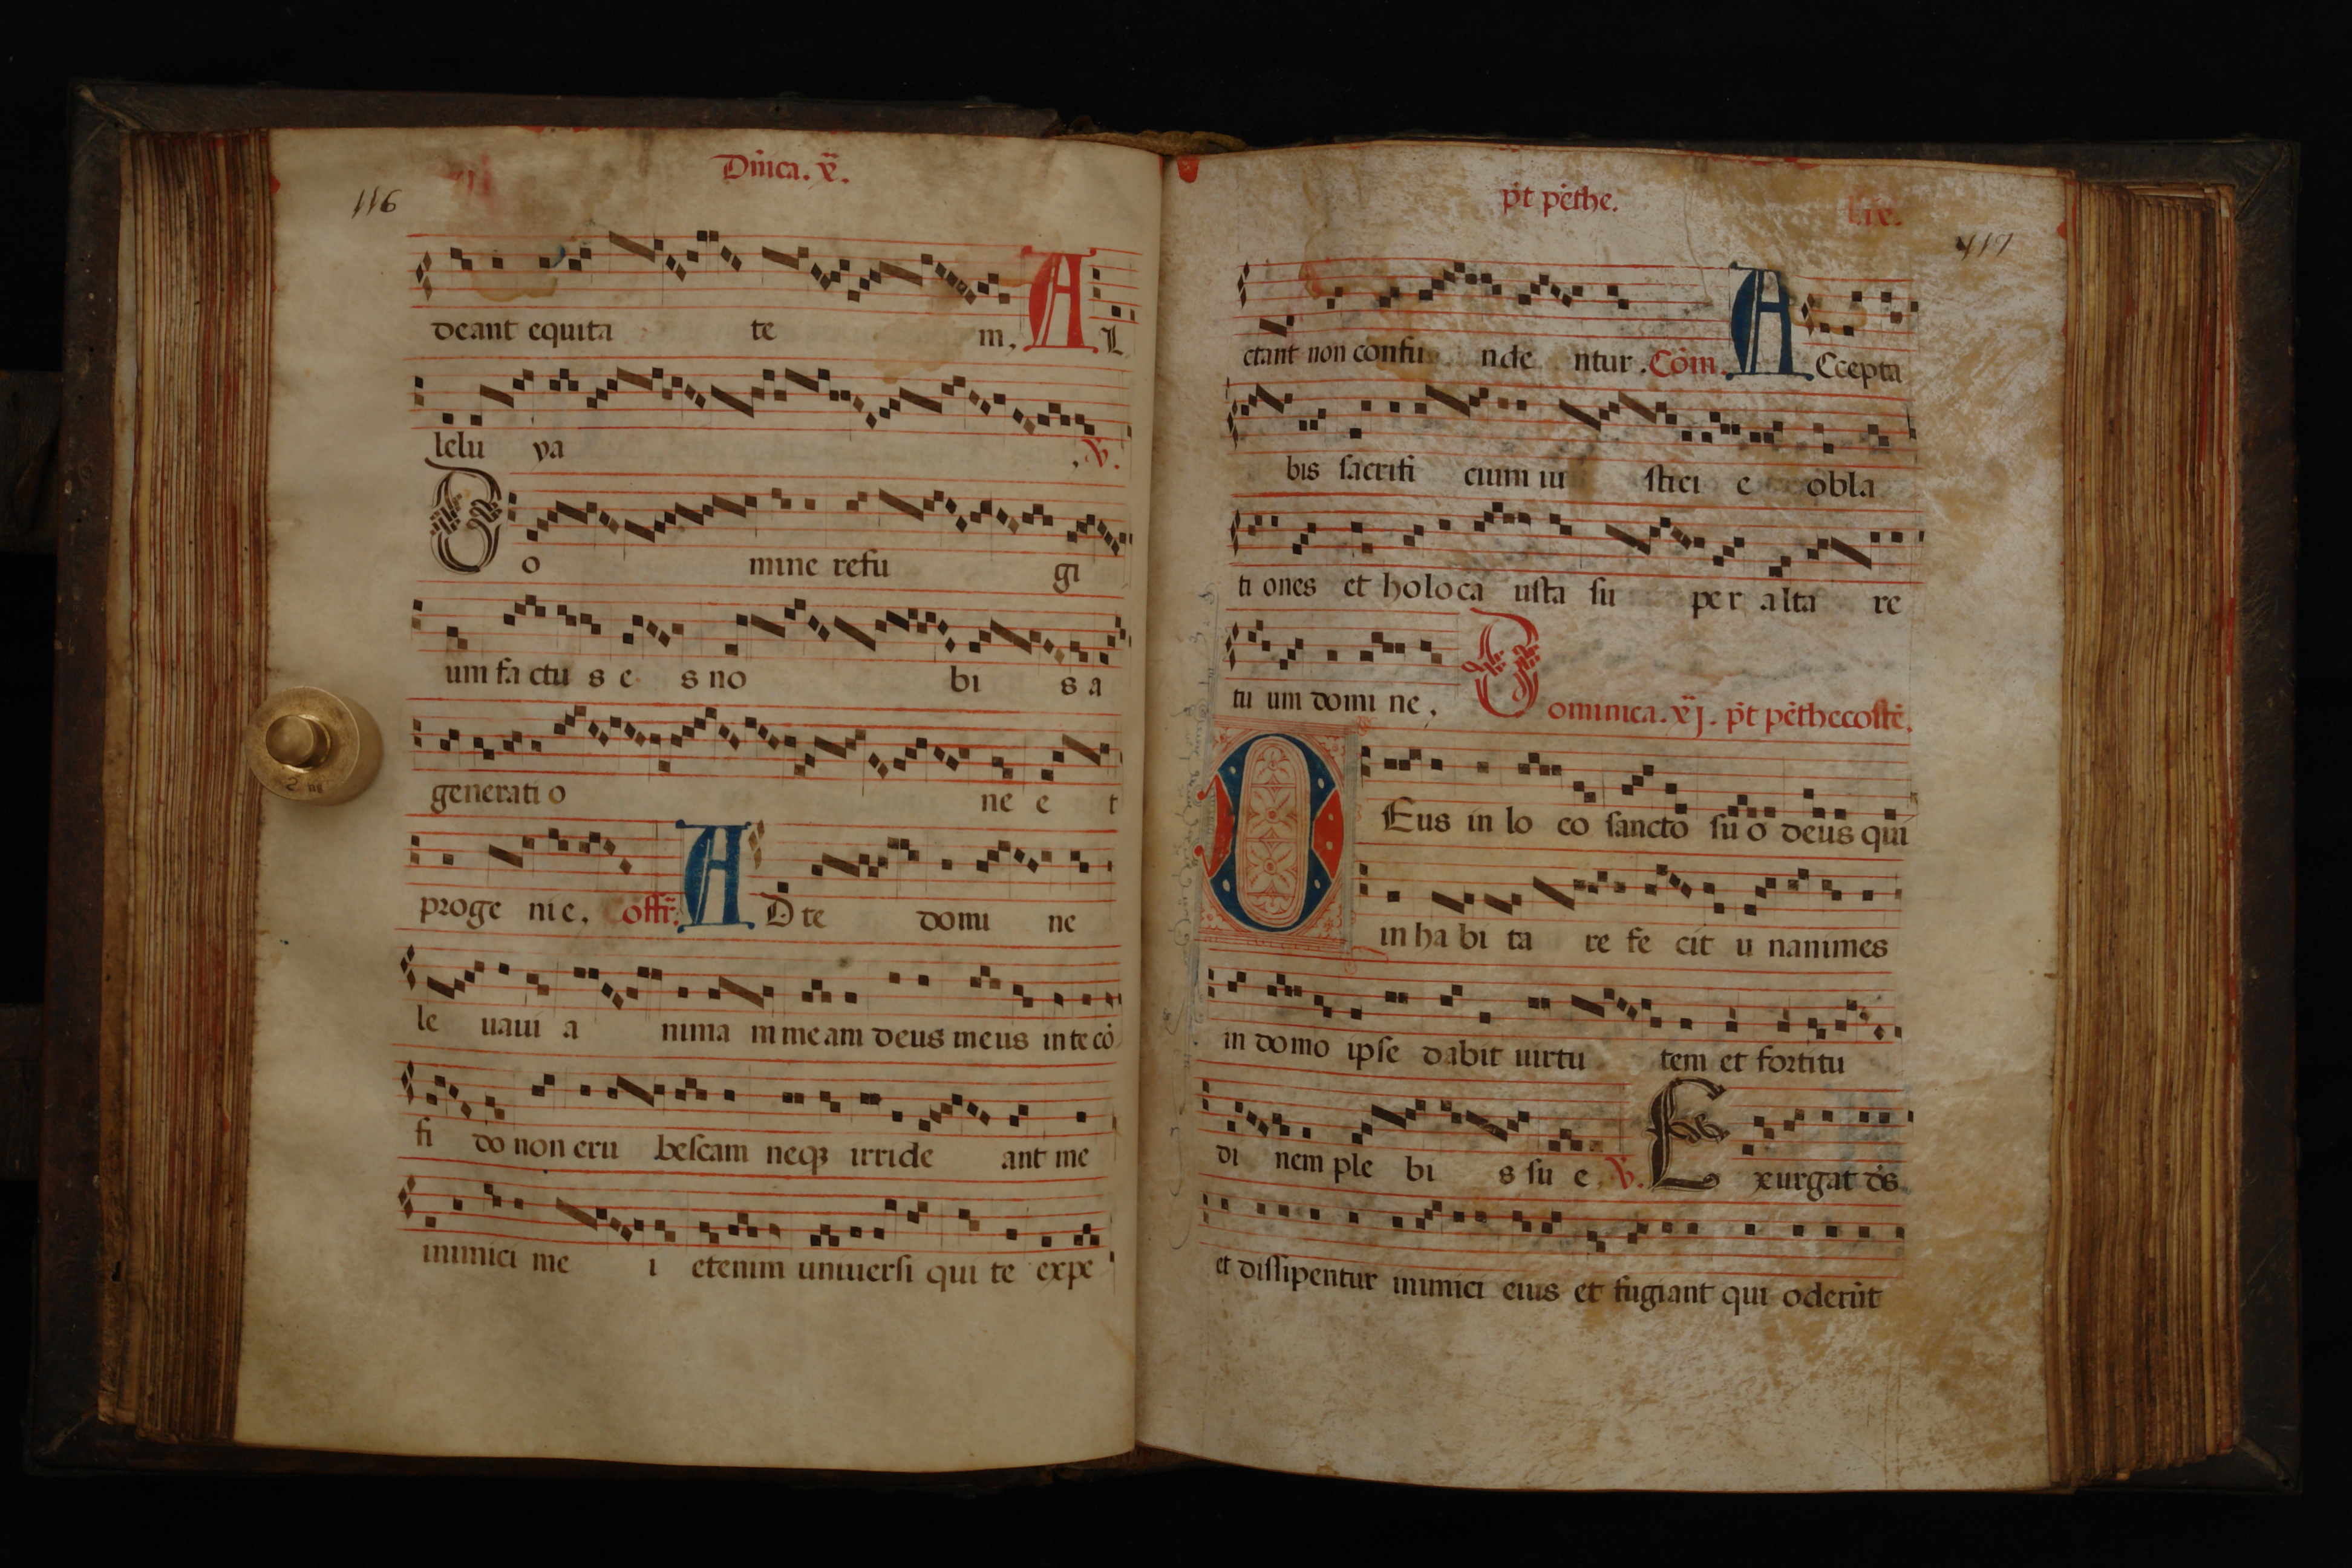 Dñica. x̃.
116
deant equita te m. A L
lelu ya .℣.
D o mine refu gi
um fa ctu s e s no bi s a
generati o ne e t
proge nie. offr̃. A D te domi ne
le uaui a nima m meam deus meus in te cõ
fi do non eru bescam neqꝫ irride ant me
inimici me i etenim uniuersi qui te expe
p̃t pẽthe.
lix.
117
ctant non confu nde ntur. Cõm. A Ccepta
bis sacrifi cium iu stici e obla
ti ones et holoca usta su per alta re
tu um domi ne. D ominica. xj. p̃t pẽthecostẽ.
D Eus in lo co sancto su o deus qui
in ha bi ta re fe cit u nanimes
in domo ipse dabit uirtu tem et fortitu
di nem ple bi s su e ℣. E xurgat ds̃
et dissipentur inimici eius et fugiant qui oderũt